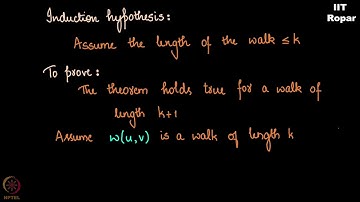 IIT
Ropar
Induction hypothesis:
Assume the length of the walk ≤ k
To prove:
The theorem holds true for a walk of
length k+1
Assume w(u,v) is a walk of length k
NPTEL